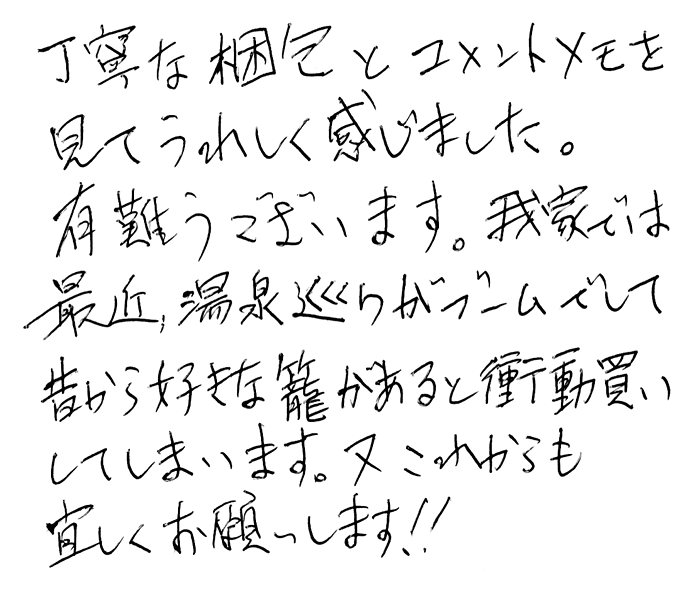 丁寧な梱包とコメントメモを
見てうれしく感じました。
有難うございます。我家では
最近,湯泉巡りがブームでして
昔から好きな籠があると衝動買い
してしまいます。又これからも
宜しくお願いします!!